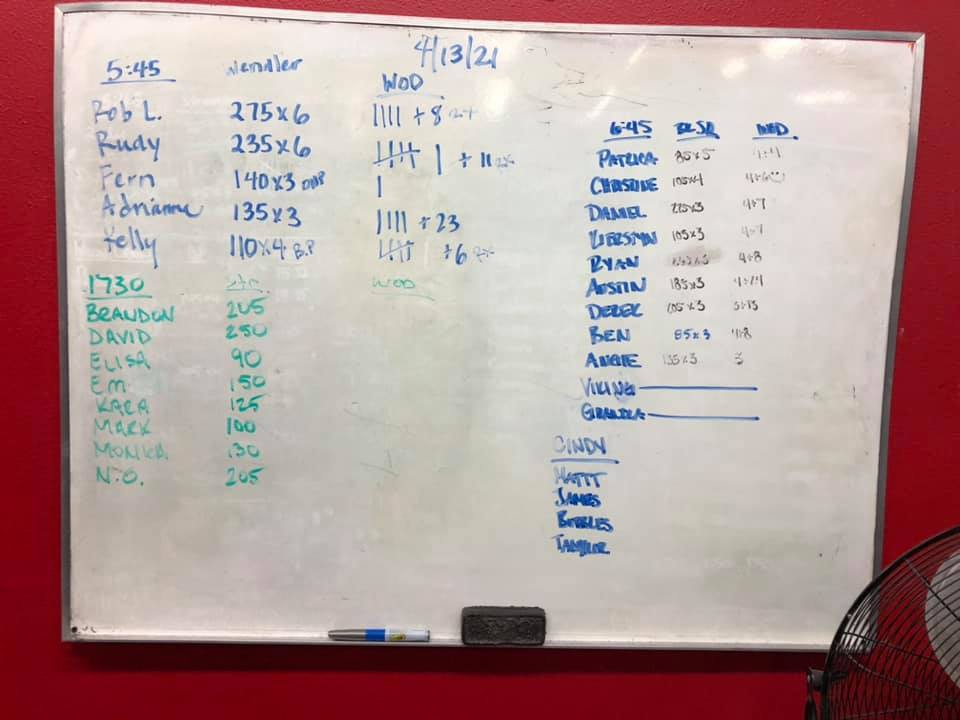 4/13/21
5:45 Wendler WOD
Rob L. 275x6 |||| + 8
Rudy 235x6 |||| | + 11
Fern 140x3 |
Adrianne 135x3 |||| + 23
Kelly 110x4 B.P +6
1730 WOD
BRANDON 205
DAVID 250
ELISA 90
EM 150
KARA 125
MARK 100
MONICA 130
N.O. 205
6:45 WOD
PATRICA 85x5 4+4
CHRISTINE 105x4
DANIEL 225x3 4+7
KIERSTYN 105x3 4+7
RYAN 4+8
AUSTIN 185x3 4+14
DEREK
BEN 85x3 4+8
ANGIE 135x3 3
VIKING
CINDY
MATTT
JAMES